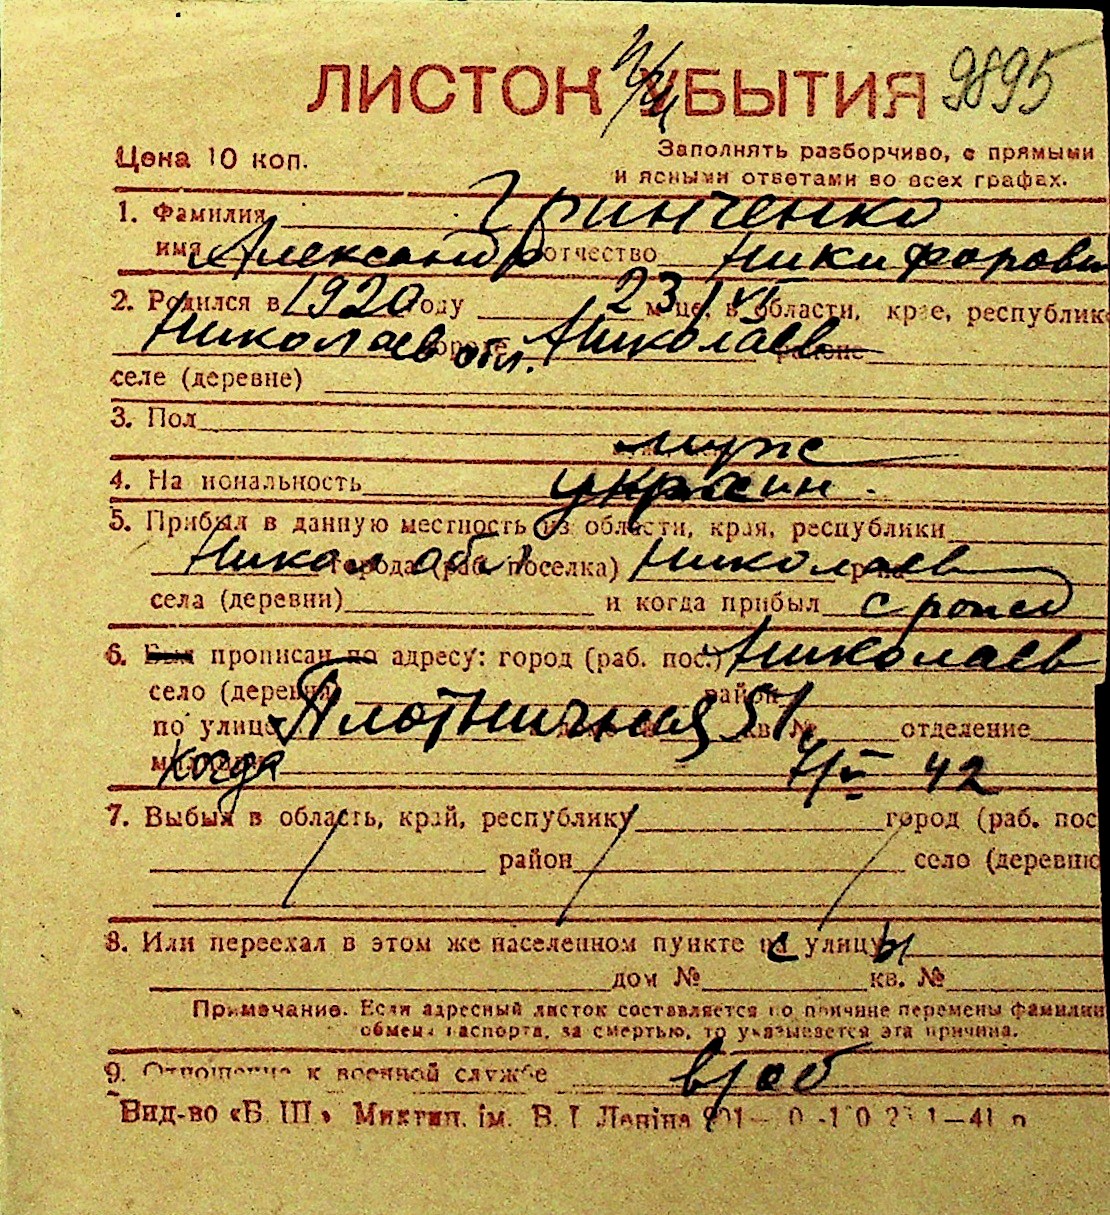 ЛИСТОК УБЫТИЯ 9895
Цена 10 коп.
Заполнять разборчиво, с прямыми
и ясными ответами во всех графах.
1. Фамилия Гринченко
имя Александр отчество Никифорови
2. Родился в 1920 году 23/VI м-це, в области, крае, республике
Николаев обл. городе Николаев районе
селе (деревне)
3. Пол муж
4. На иональность украин.
5. Прибыл в данную местность из области, края, республики
Никол обл. города (раб. поселка) Николаев р-на
села (деревни) и когда прибыл с рожд
6. Был прописан по адресу: город (раб. пос.) Николаев
село (деревня) район
по улице Плотничная 51, кв. № отделение
когда 7/V 42
7. Выбыл в область, край, республику город (раб. пос
район село (деревню
8. Или переехал в этом же населенном пункте с улицы
дом № кв. №
Примечание. Если адресный листок составляется по причине перемены фамилии
обмена паспорта, за смертью, то указывается эта причина.
9. Отношение к военной службе в/об
Вид-во «Б. Ш.» Миктип. ім. В. І. Леніна